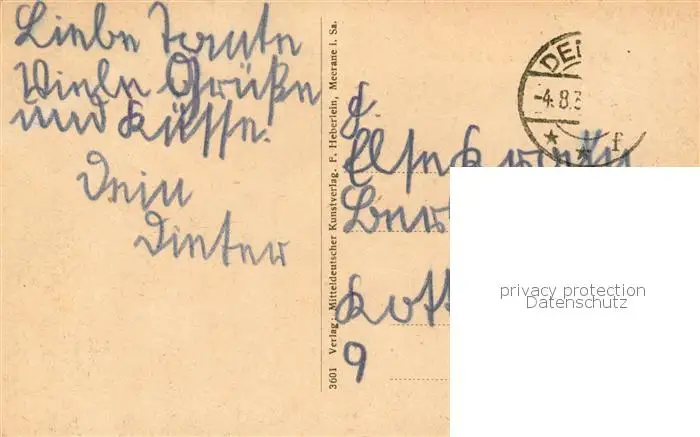 Liebe Tante
Viele Grüße
und Küsse.
Dein
Dieter
3601 Verlag: Mitteldeutscher Kunstverlag. F. Heberlein, Meerane i. Sa.
-4.8.3
f
Else
9
privacy protection
Datenschutz